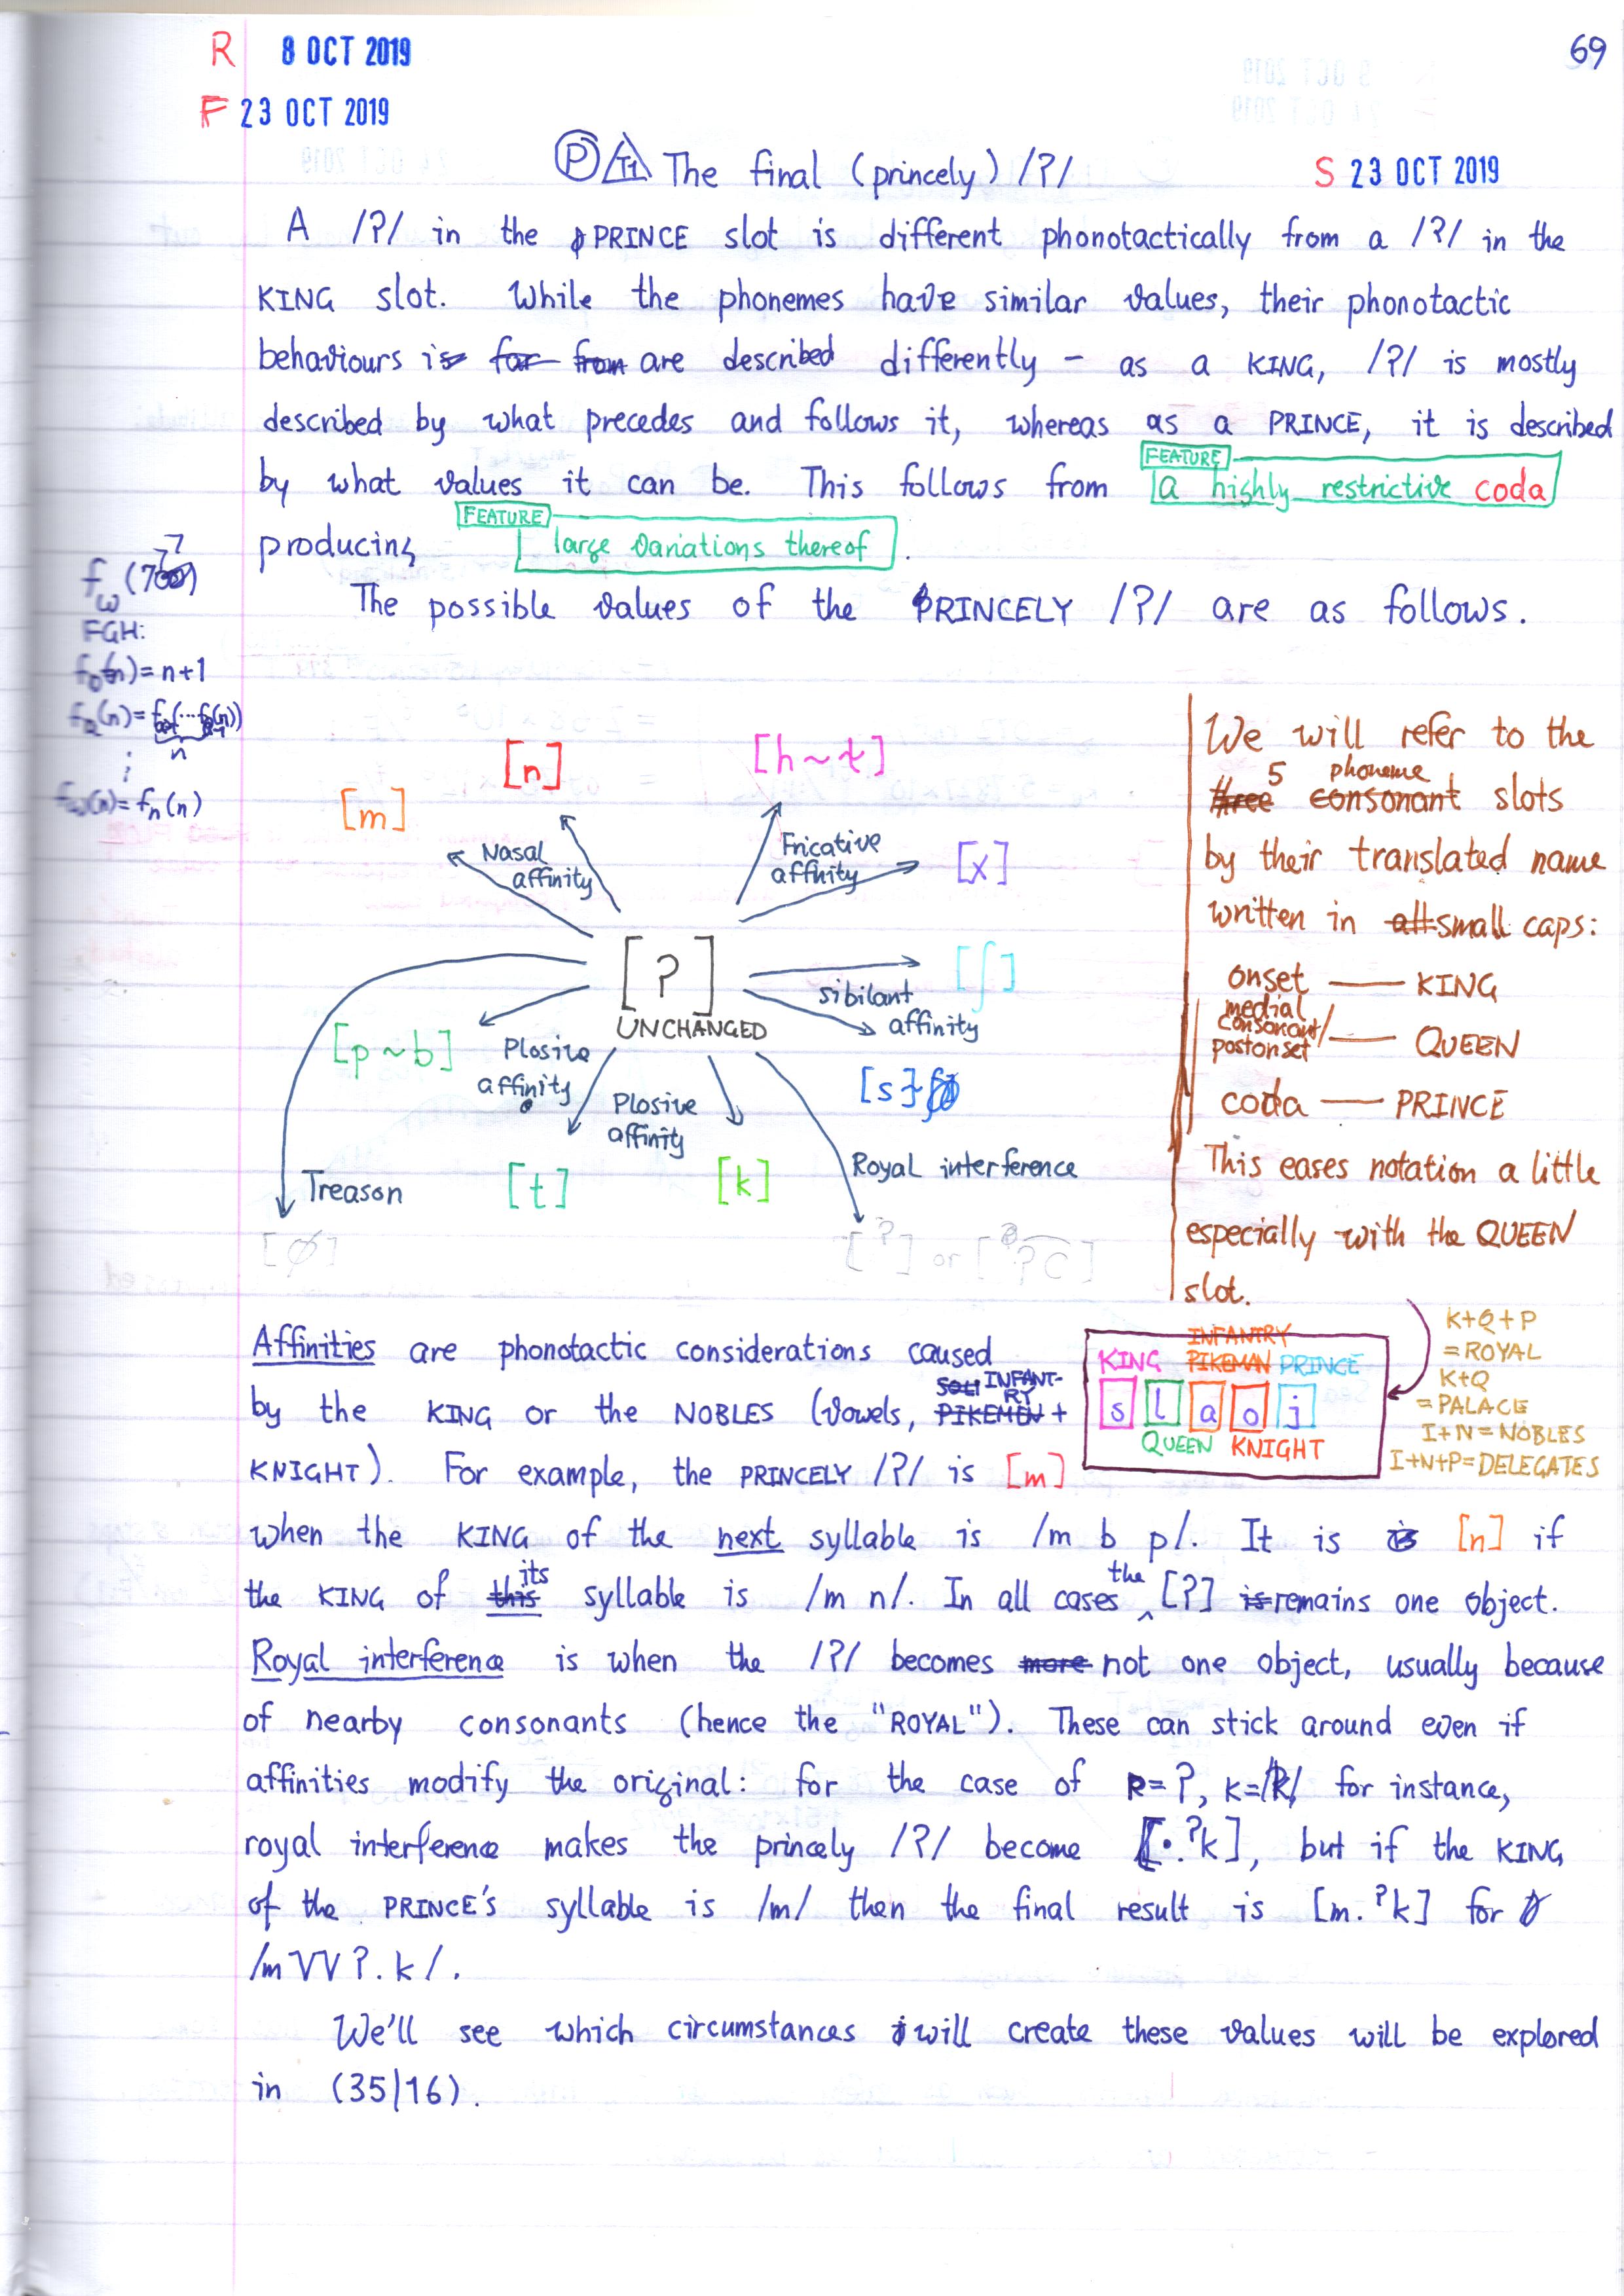 R 8 OCT 2019
69
F 23 OCT 2019
P T1 The final (princely) /ʔ/
S 23 OCT 2019
A /ʔ/ in the PRINCE slot is different phonotactically from a /ʔ/ in the
KING slot. While the phonemes have similar values, their phonotactic
behaviours is far from are described differently – as a KING, /ʔ/ is mostly
described by what precedes and follows it, whereas as a PRINCE, it is described
FEATURE
by what values it can be. This follows from a highly restrictive coda
FEATURE
producing large variations thereof.
The possible values of the PRINCELY /ʔ/ are as follows.
FGH:
f₀(n) = n+1
n
⋮
fω(n) = fₙ(n)
[n]
[h~t]
[m]
Nasal
affinity
Fricative
affinity
[x]
[ʔ]
UNCHANGED
[ʃ]
sibilant
affinity
[p~b]
Plosive
affinity
[s]
Plosive
affinity
Treason
[t]
[k]
Royal interference
[∅]
[ˀ] or
We will refer to the
three 5 consonant phoneme slots
by their translated name
written in all small caps:
onset — KING
medial
consonant/
postonset — QUEEN
coda — PRINCE
This eases notation a little
especially with the QUEEN
slot.
K+Q+P
= ROYAL
K+Q
= PALACE
I+N = NOBLES
I+N+P = DELEGATES
INFANTRY
KING PIKEMAN PRINCE
s l a o j
QUEEN KNIGHT
Affinities are phonotactic considerations caused
by the KING or the NOBLES (vowels, PIKEMEN INFANTRY +
KNIGHT). For example, the PRINCELY /ʔ/ is [m]
when the KING of the next syllable is /m b p/. It is is [n] if
the KING of this its syllable is /m n/. In all cases the [ʔ] is remains one object.
Royal interference is when the /ʔ/ becomes more not one object, usually because
of nearby consonants (hence the "ROYAL"). These can stick around even if
affinities modify the original: for the case of P=ʔ, K=/k/ for instance,
royal interference makes the princely /ʔ/ become [.ˀk], but if the KING
of the PRINCE's syllable is /m/ then the final result is [m.ˀk] for
/mVVʔ.k/.
We'll see which circumstances will create these values will be explored
in (35|16).